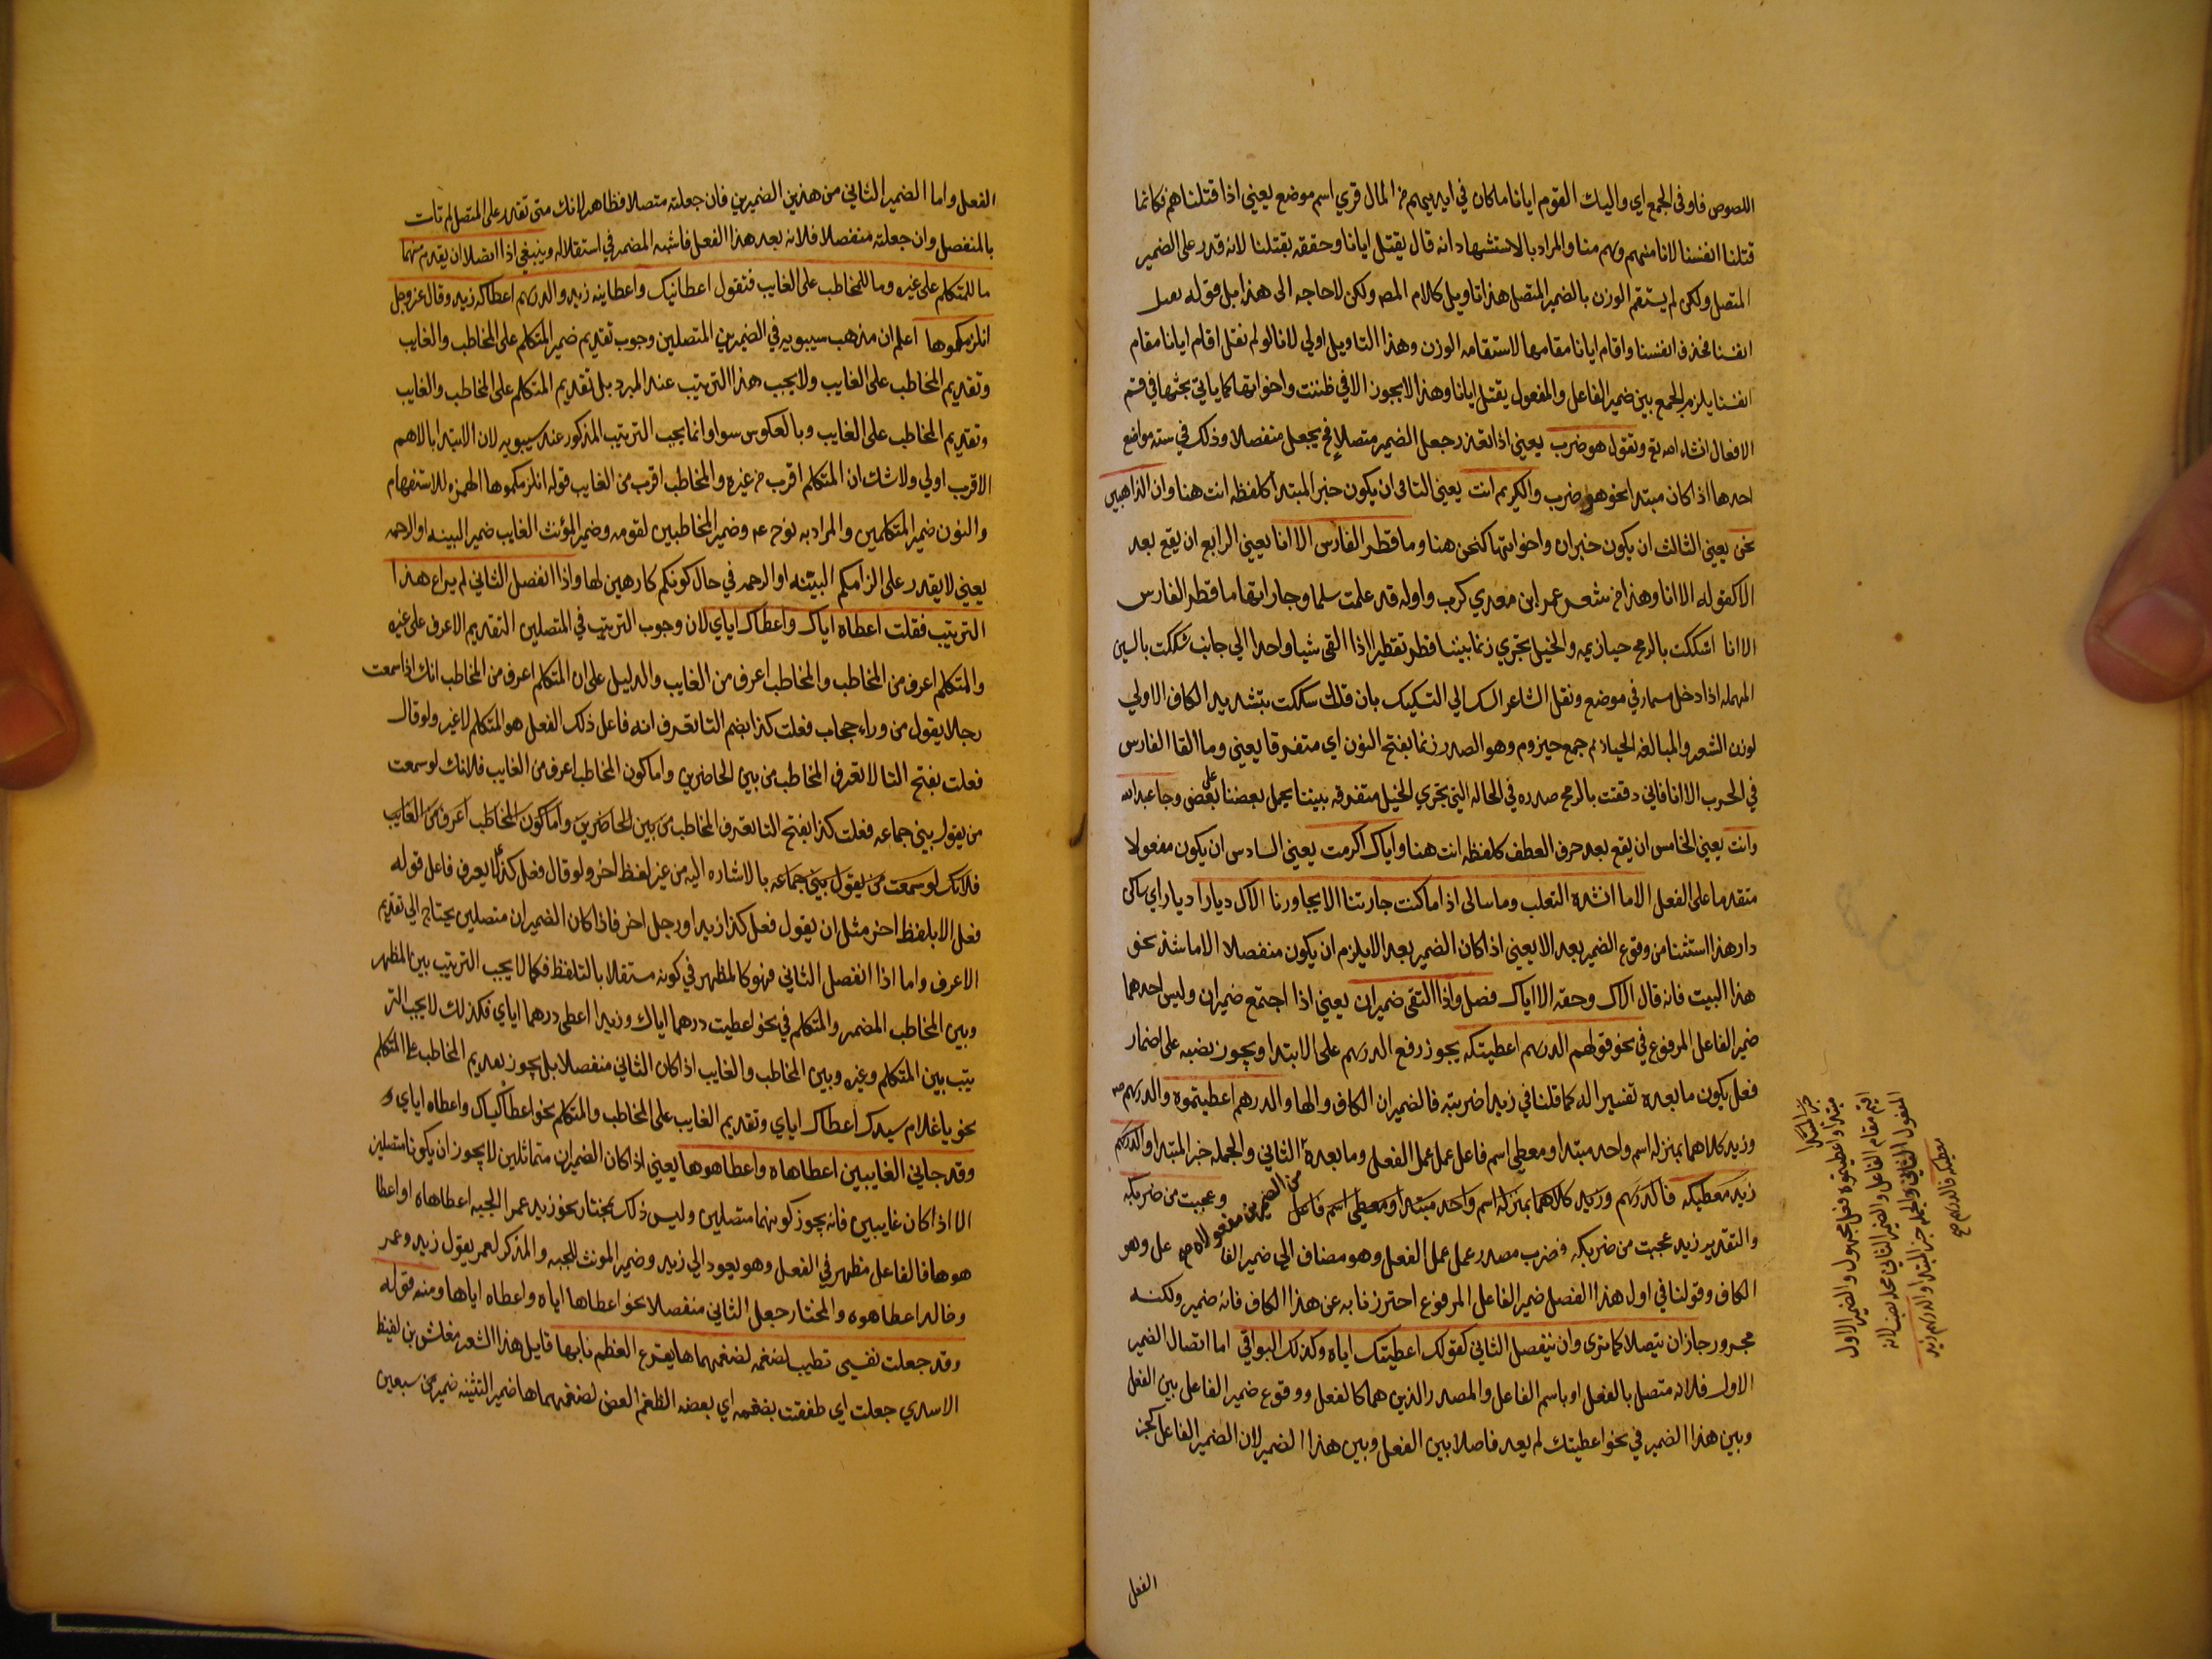 اللصوص فاوفى الجمع اي واليك القوم ايانا ماكان في ايديهم من المال قري اسم موضع يعني اذا قتلناهم فكانما
قتلنا انفسنا لانا منهم وهم منا والمراد بالاستشهاد انه قال يقتل ايانا وحققه بقتلنا لانه قدر على الضمير
المتصل ولكن لم يستقم الوزن بالضمير المتصل هذا تاويل كلام المص ولكن لاحاجه الى هذا بل قوله
انفسنا فحذف انفسنا واقام ايانا مقامها لاستقامه الوزن وهذا التاويل اولي لانا لو لم نقل اقام ايانا مقام
انفسنا يلزم الجمع بين ضمير الفاعل والمفعول يقتل ايانا وهذا لايجوز الا في ظننت واخواتها كما ياتي بحثها في قسم
الافعال انشاء الله تع وتقول هو ضرب يعني اذا تعذر جعل الضمير متصلا فح يجعل منفصلا وذلك في سته مواضع
احدها اذا كان مبتدا نحو هو ضرب والكريم انت يعني الثاني ان يكون خبر المبتدا كلفظه انت هنا وان الذاهبين
نحن يعني الثالث ان يكون خبر ان واخواتها كنحن هنا وما قطر الفارس الا انا يعني الرابع ان يقع بعد
الا كقوله الا انا وهذا من شعر عمر ابن معدي كرب واوله قد علمت سلما وجاراتها ما قطر الفارس
الا انا اشككت بالرمح حيازيمه والخيل تجري زنما بيننا قطر تقطيرا اذا القى شيا واحدا الي جانب شككت بالسين
المهمله اذا دخل مسمار في موضع ونقل الشاعر السك الي التسكيك بان قلك سككت بتشديد الكاف الاولي
لوزن الشعر والمبالغه الحيازيم جمع حيزوم وهو الصدر زنما بفتح النون اي متفرقا يعني وما القا الفارس
في الحرب الا انا فاني دققت بالرمح صدره في الحاله التي تجري الخيل متفرقه بيننا يحمل بعضنا على بعض وجا عبدالله
وانت يعني الخامس ان يقع بعد حرف العطف كلفظه انت هنا واياك اكرمت يعني السادس ان يكون مفعولا
متقدما على الفعل الا ما انشده الثعلب وما سالى اذا ما كنت جارتنا الا يجاورنا الاك ديارا ديار اي ساكن
دار هذا استثنا من وقوع الضمير بعد الا يعني اذا كان الضمير بعد الا يلزم ان يكون منفصلا الا ما شذ نحو
هذا البيت فانه قال الاك وحقه الا اياك فصل واذا التقى ضميران يعني اذا اجتمع ضميران وليس احدهما
ضمير الفاعل المرفوع في نحو قولهم الدرهم اعطيتكه يجوز رفع الدرهم على الابتدا ويجوز نصبه على اضمار
فعل يكون ما بعده تفسيرا له كما قلنا في زيدا ضربته فالضميران الكاف والها والدرهم اعطيتموه والدرهم
وزيد كلاهما بمنزله اسم واحد مبتدا ومعطي اسم فاعل عمل عمل الفعل وما بعده الثاني والجمله خبر المبتدا والدرهم
زيد معطيكه فالدرهم وزيد كلاهما بمنزله اسم واحد مبتدا ومعطي اسم فاعل من الضميرين مفعولاه صح وعجبت من ضربكه
والتقدير زيد عجبت من ضربكه فضرب مصدر عمل عمل الفعل وهو مضاف الي ضمير الفاعل وهو
الكاف وقولنا في اول هذا الفصل ضمير الفاعل المرفوع احترزنا به عن هذا الكاف فانه ضمير ولكنه
مجرور جاز ان يتصلا كما ترى وان ينفصل الثاني كقولك اعطيتك اياه وكذلك البواقي اما اتصال الضمير
الاول فلانه متصل بالفعل او باسم الفاعل والمصدر الذين هما كالفعل ووقوع ضمير الفاعل بين الفعل
وبين هذا الضمير في نحو اعطيتك لم يعد فاصلا بين الفعل وبين هذا الضمير لان الضمير الفاعل كجز
الفعل
مبتدا واعطيتموه فعل مجهول والضمير الاول
اقيم مقام الفاعل والضمير الثاني محله نصب لانه
المفعول الثاني والجمله خبر المبتدا والدرهم زيد
معطيكه فالدرهم صح
الفعل واما الضمير الثاني من هذين الضميرين فان جعلته متصلا فظاهر لانك متى تقدر على المتصل لم تات
بالمنفصل وان جعلته منفصلا فلانه بعد هذا الفعل فاشبه المضمر في استقلاله وينبغي اذا اتصلا ان يقدم منهما
ما للمتكلم على غيره وما للمخاطب على الغايب فتقول اعطانيك واعطانيه زيد والدرهم اعطاكه زيد وقال عز وجل
انلزمكموها اعلم ان مذهب سيبويه في الضميرين المتصلين وجوب تقديم ضمير المتكلم على المخاطب والغايب
وتقديم المخاطب على الغايب ولا يجب هذا الترتيب عند المبرد بل تقديم المتكلم على المخاطب والغايب
وتقديم المخاطب على الغايب وبالعكوس سوا وانما يجب الترتيب المذكور عند سيبويه لان الابتدا بالاهم
الاقرب اولي ولاشك ان المتكلم اقرب من غيره والمخاطب اقرب من الغايب قوله انلزمكموها الهمزه للاستفهام
والنون ضمير المتكلمين والمراد به نوح عم وضمير المخاطبين لقومه وضمير المؤنث الغايب ضمير البينه او الرحمه
يعني لا يقدر على الزامكم البينه او الرحمه في حال كونكم كارهين لها واذا انفصل الثاني لم يراع هذا
الترتيب فقلت اعطاه اياك واعطاك اياي لان وجوب الترتيب في المتصلين التقديم الاعرف على غيره
والمتكلم اعرف من المخاطب والمخاطب اعرف من الغايب والدليل على ان المتكلم اعرف من المخاطب انك اذا سمعت
رجلا يقول من وراء حجاب فعلت كذا بضم التا تعرف انه فاعل ذلك الفعل هو المتكلم لا غير ولو قال
فعلت بفتح التا لا تعرف المخاطب من بين الحاضرين واما كون المخاطب اعرف من الغايب فلانك لو سمعت
من يقول بيني جماعه فعلت كذا بفتح التا تعرف المخاطب من بين الحاضرين واما كون المخاطب اعرف من الغايب
فلانك لو سمعت من يقول بيني جماعه بالاشاره اليه من غير لفظ اخر ولو قال فعل كذا لا يعرف فاعل قوله
فعل الا بلفظ اخر مثل ان يقول فعل كذا زيد او رجل اخر فاذا كان الضميران متصلين يحتاج الي تقديم
الاعرف واما اذا انفصل الثاني فهو كالمظهر في كونه مستقلا بالتلفظ فكما لا يجب الترتيب بين المظهر
وبين المخاطب المضمر والمتكلم في نحو اعطيت درهما اياك وزيدا اعطى درهما اياي فكذلك لا يجب التر
يتب بين المتكلم وغيره وبين المخاطب والغايب اذا كان الثاني منفصلا بل يجوز تقديم المخاطب على المتكلم
نحو يا غلام سيدك اعطاك اياي وتقديم الغايب على المخاطب والمتكلم نحو اعطاك اياك واعطاه اياي و
وقد جا في الغايبين اعطاهاه واعطاهوها يعني اذا كان الضميران متماثلين لا يجوز ان يكونا متصلين
الا اذا كان غايبين فانه يجوز كونهما متصلين وليس ذلك بمختار نحو زيد عمر الجبه اعطاهاه او اعطا
هوها فالفاعل مظهر في الفعل وهو يعود الي زيد وضمير المونث للجبه والمذكر لعمر يقول زيد وعمر
وخالد اعطاهوه والمختار جعل الثاني منفصلا نحو اعطاها اياه واعطاه اياها ومنه قوله
وقد جعلت نفسي تطيب لضغمه لضغمهماها يقرع العظم نابها قايل هذا الشعر مغلس بن لقيط
الاسدي جعلت اي طفقت بضغمه اي بعضه الضغم العض لضغمهماها ضمير التثنيه ضمير من سبعين